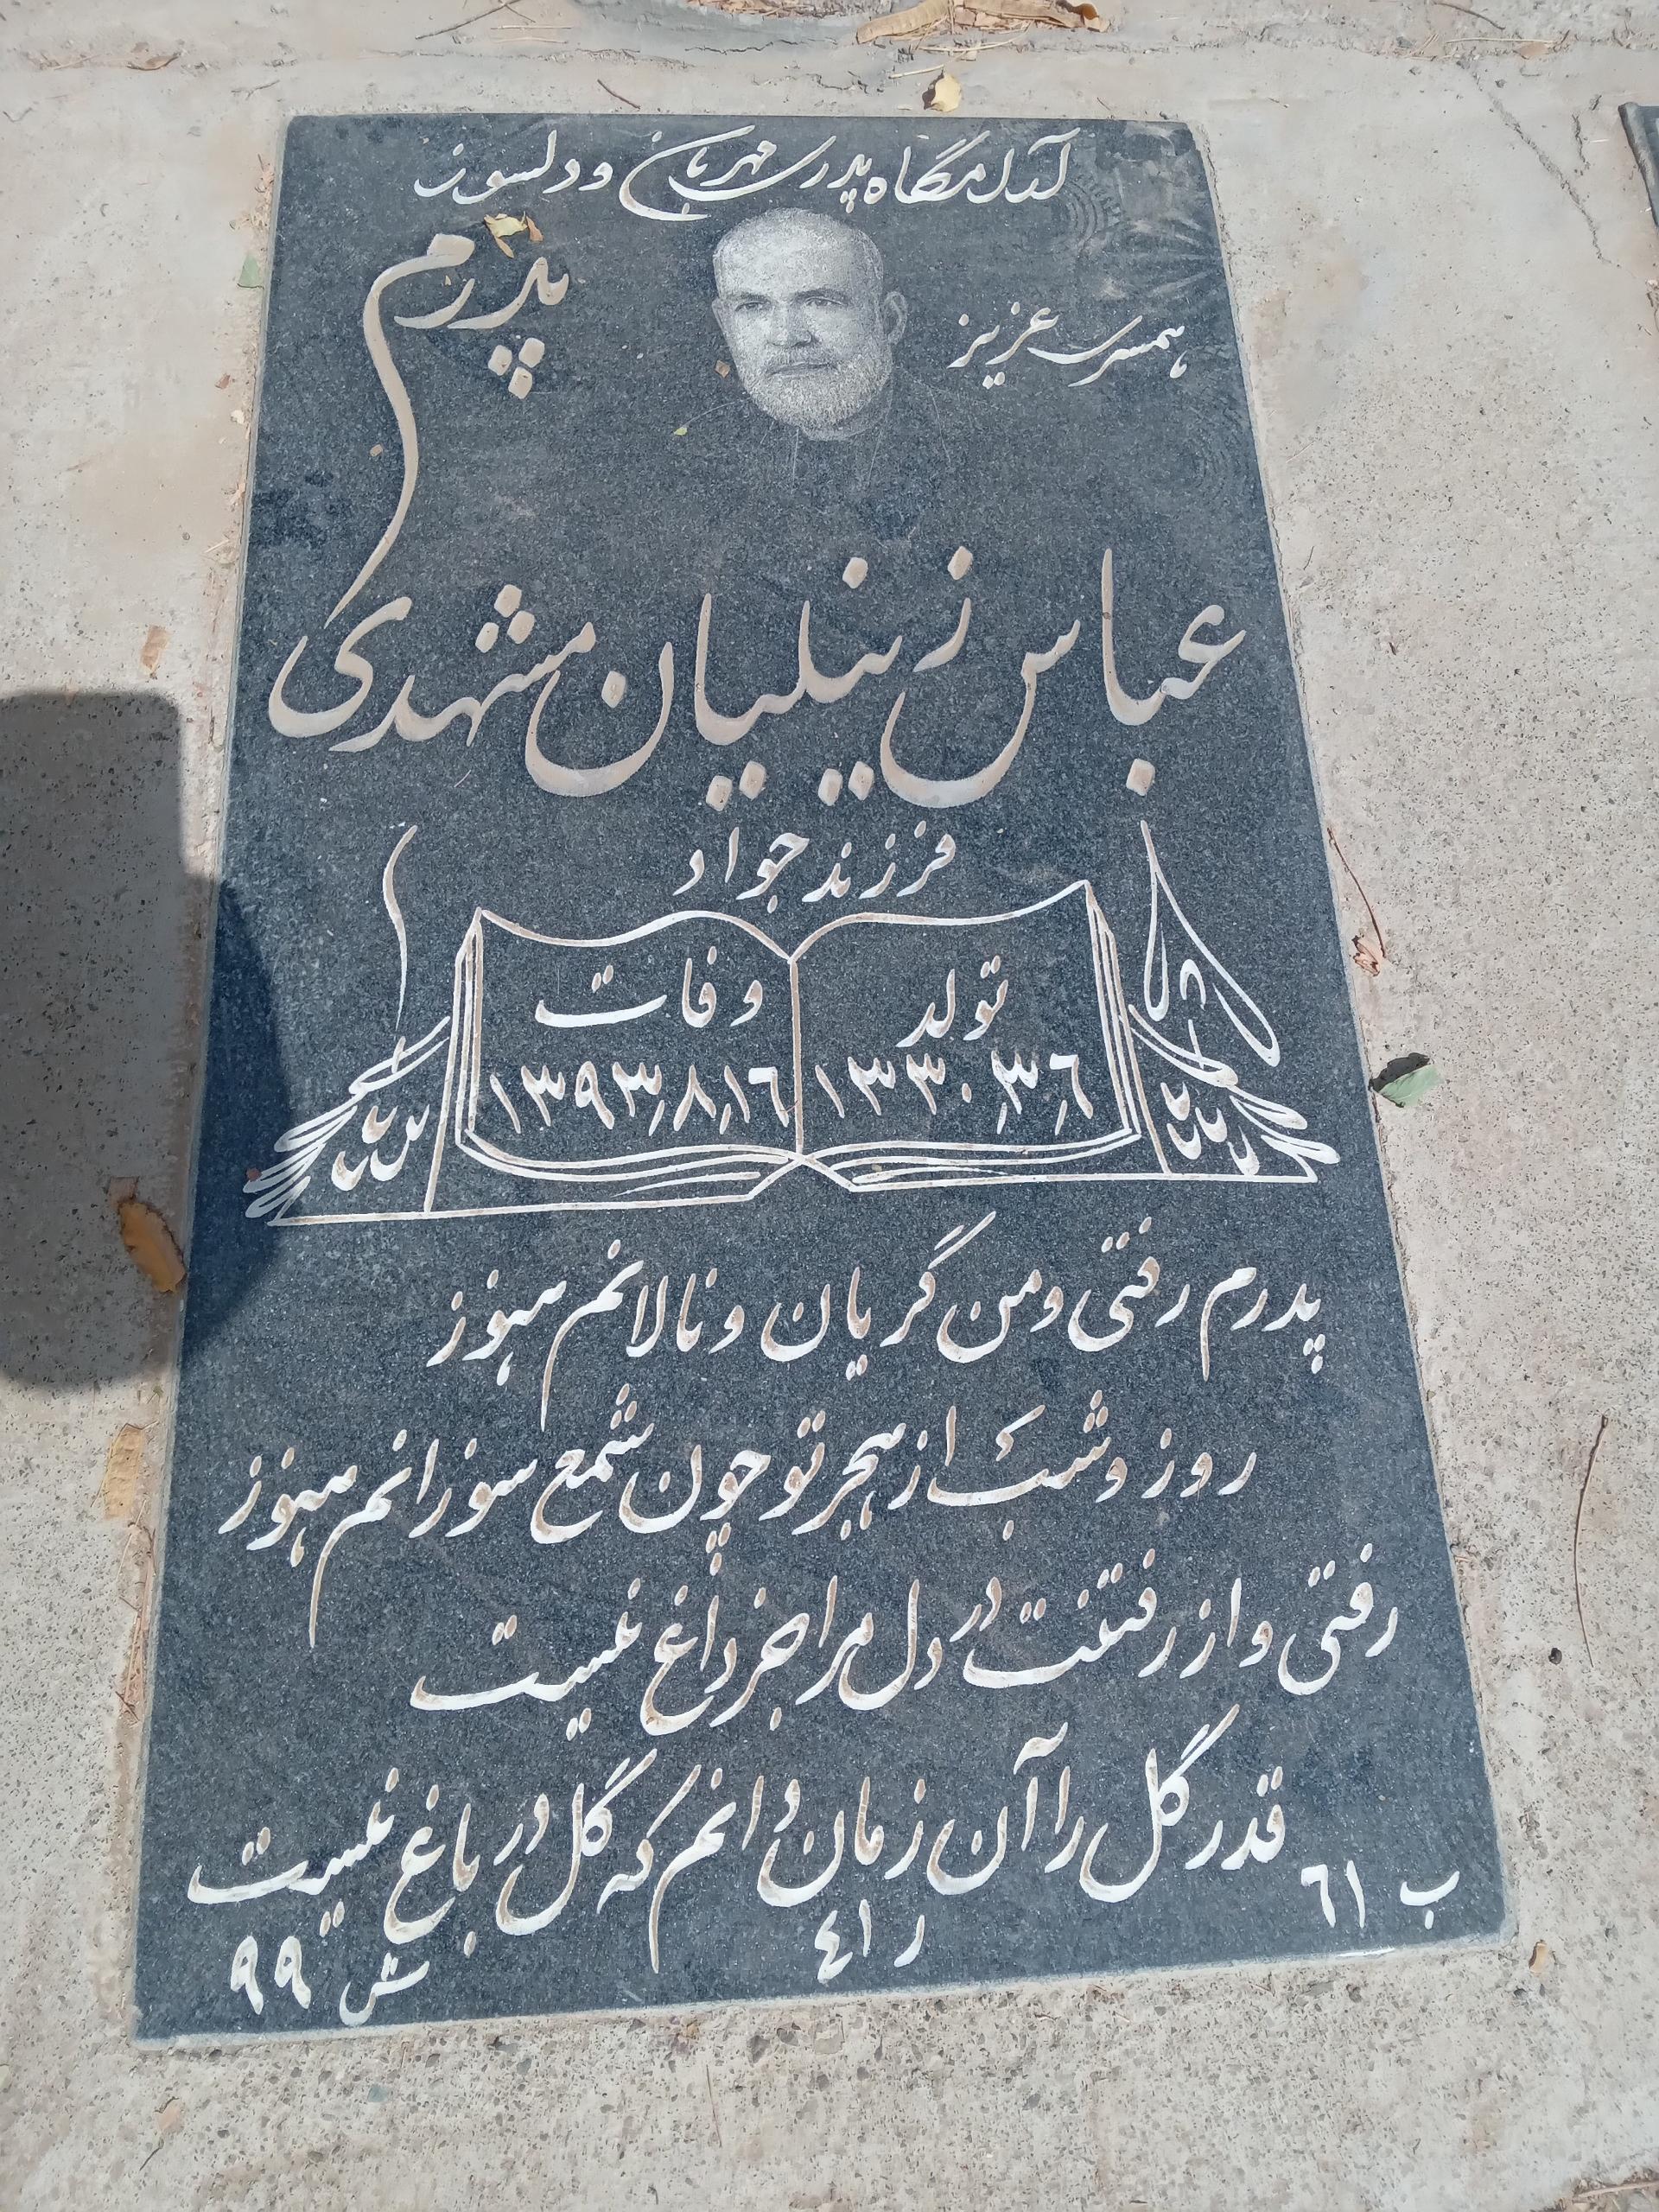 آرامگاه پدر مهربان و دلسوز
همسر عزیز
پدرم
عباس زینلیان مشهدی
فرزند جواد
تولد
۱۳۳۰,۳,۶
وفات
۱۳۹۳,۸,۱۶
پدرم رفتی و من گریان و نالانم هنوز
روز و شب از هجر تو چون شمع سوزانم هنوز
رفتی و از رفتنت در دل مرا جز داغ نیست
قدر گل را آن زمان دانم که گل در باغ نیست
ب ۶۱
ر ۴۱
ش ۹۹